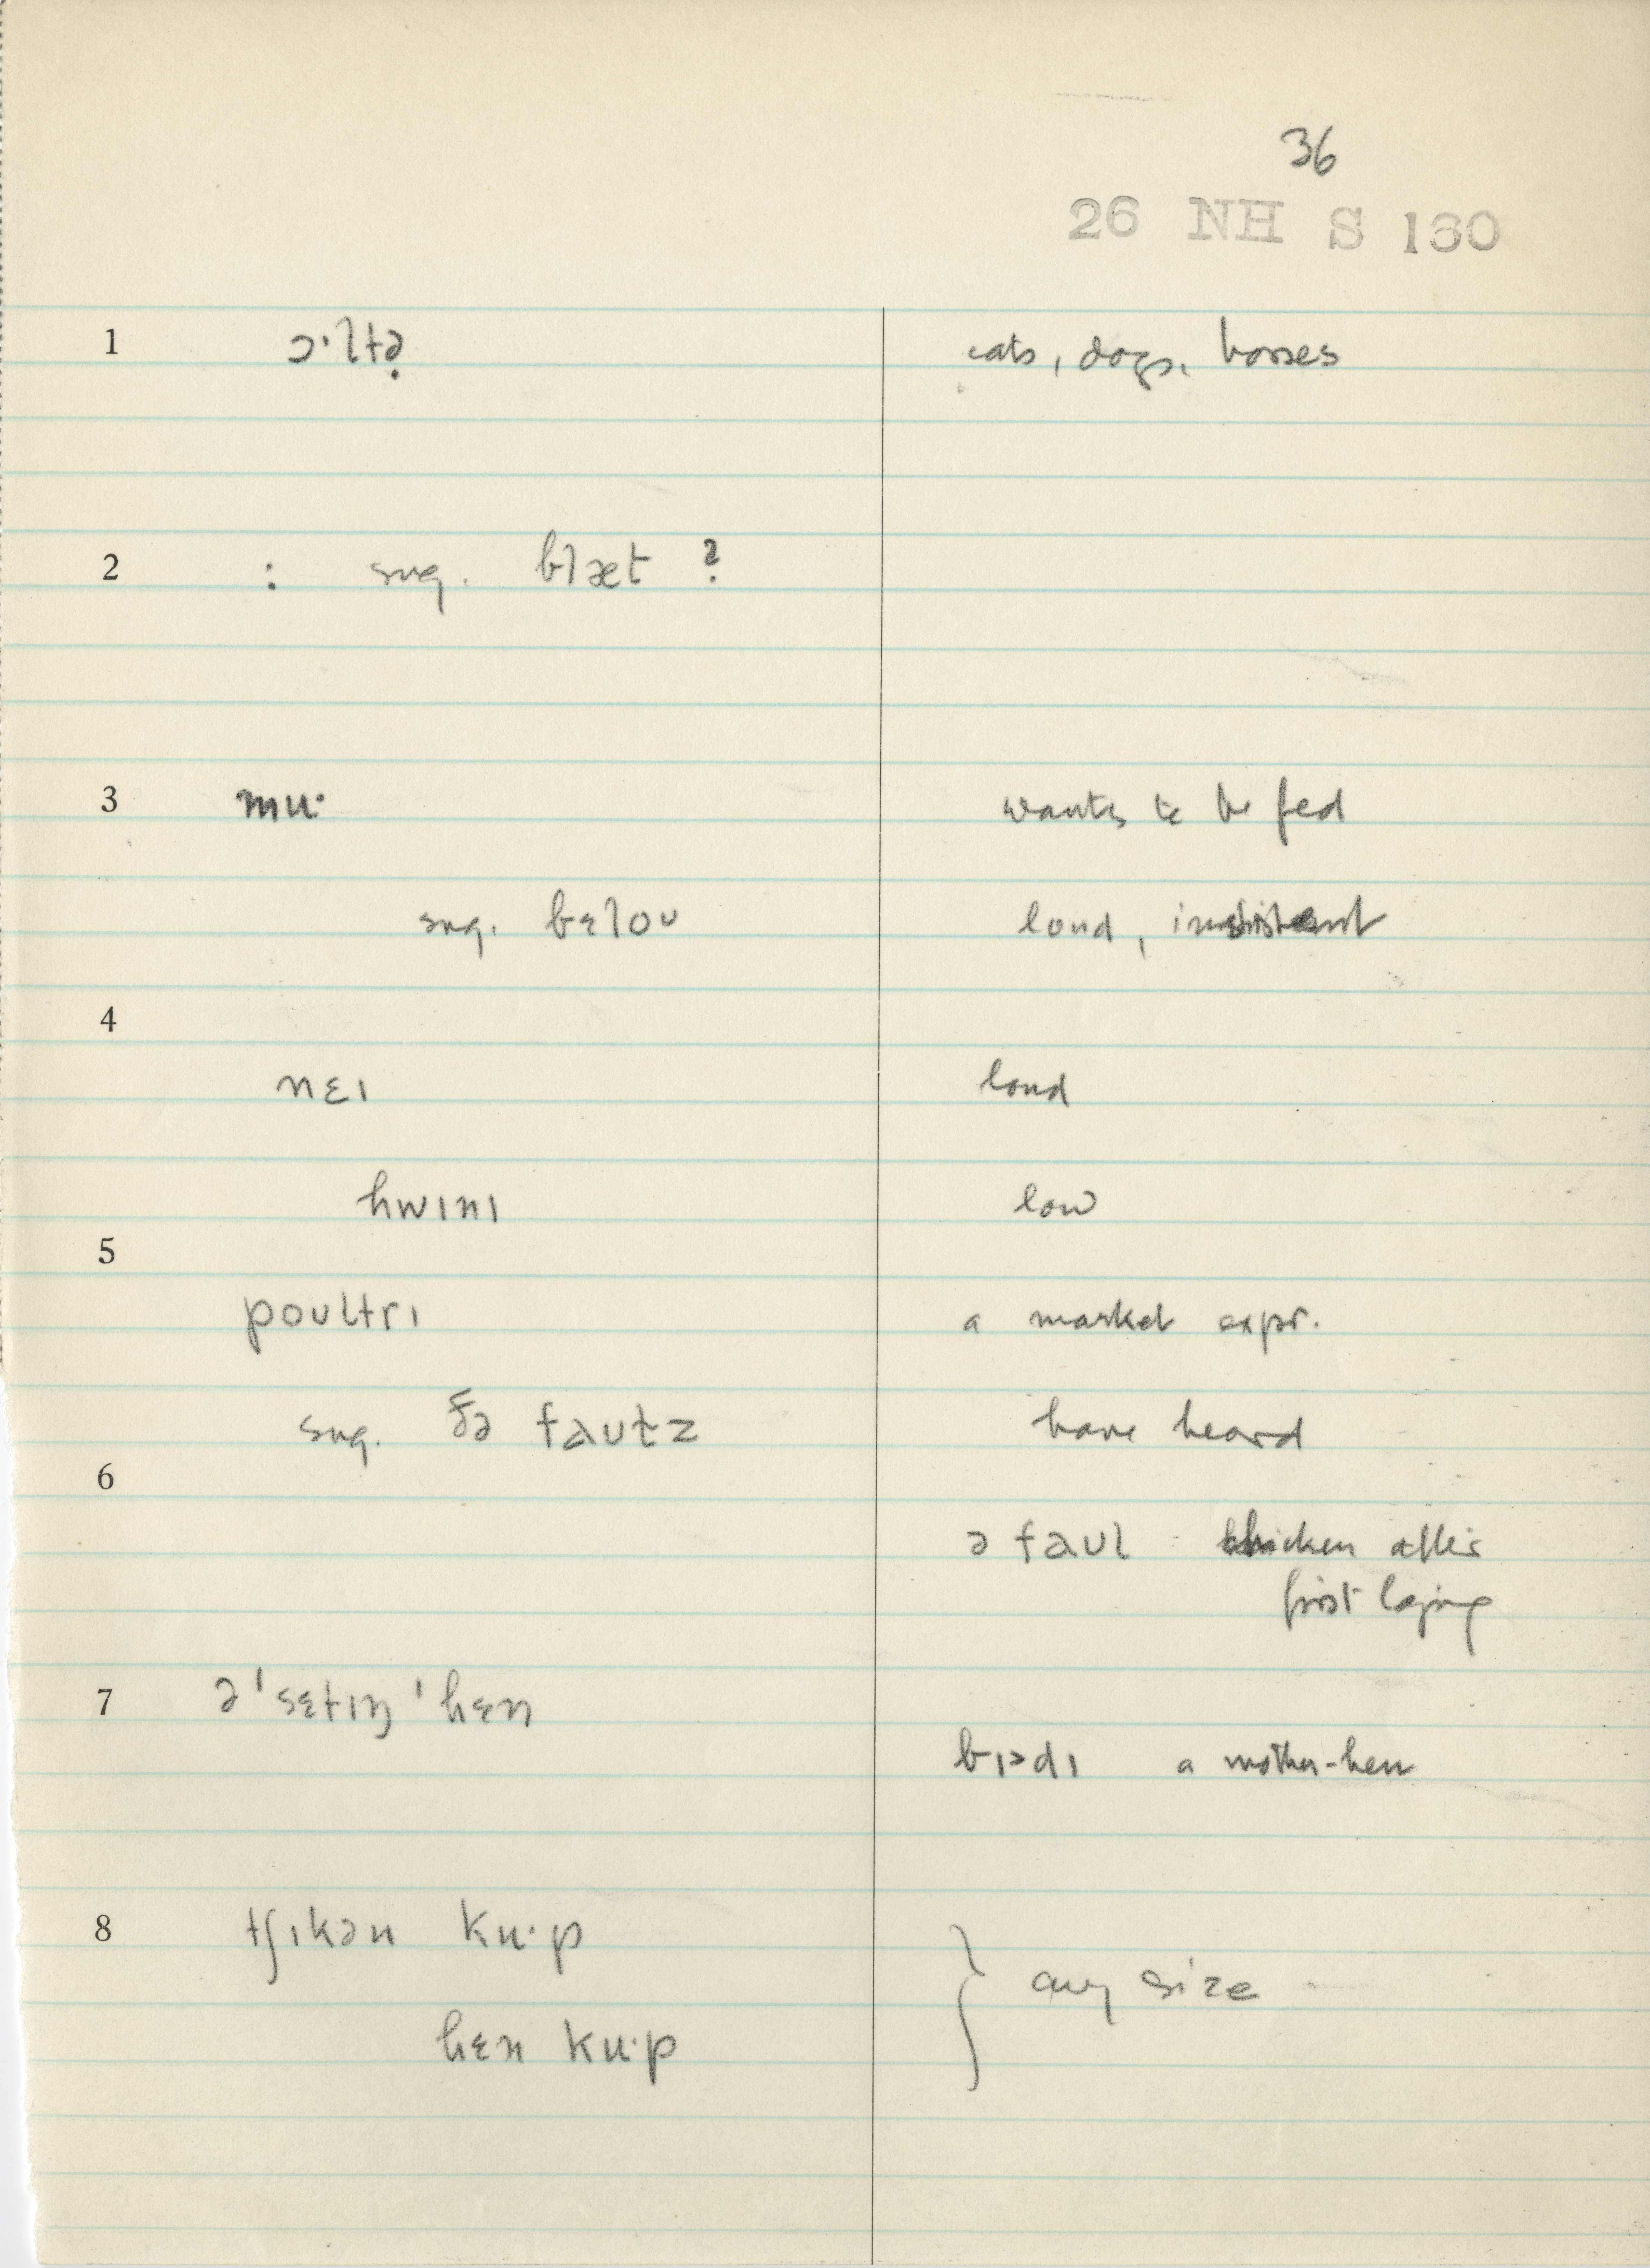 36
26 NH S 160
1 ɔˑltə̣ cats, dogs, horses
2 : sug. blæt ?
3 muˑ wants to be fed
sug. bɛloʊ loud, insistent
4
nɛɪ loud
hwɪnɪ low
5
poʊltrɪ a market expr.
sug. ðə faʊlz have heard
6
ə faʊl chicken after
first laying
7 ə ˈsɛtɪŋ ˈhɛn
a mother-hen
8 tʃɪkən kuˑp
any size
hɛn kuˑp